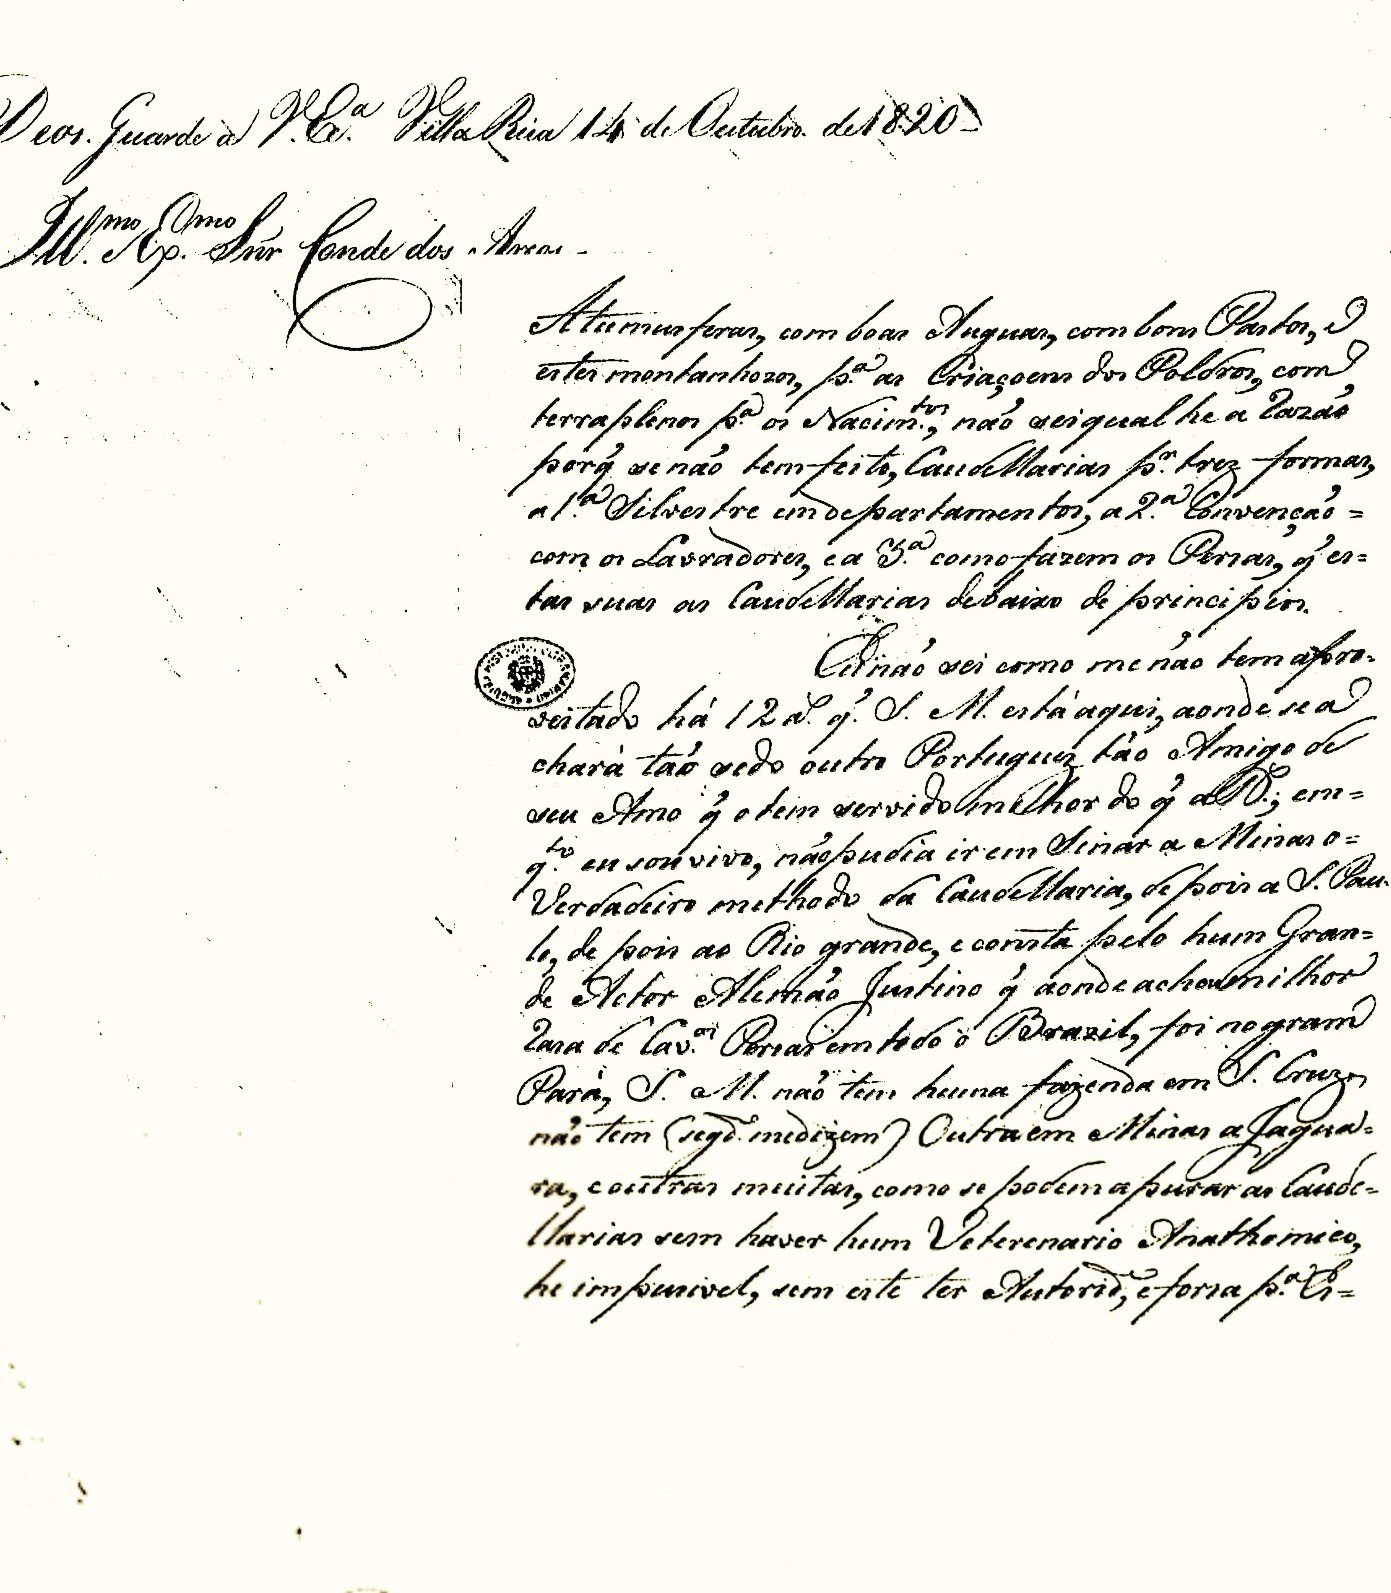 Deos. Guarde a V. Ex.ª Villa Rica 14 de Outubro. de 1820
Ill.mo Ex.mo Snr Conde dos Arcos
Atumusferas, com boas Auguas, com bons Pastos, e
estes montanhozos, p.ª as Criaçoens dos Poldros, com
terraplenos p.ª os Nacim.tos, não sei qual he a Razão
porq̃ se não tem feito, Caudellarias p.r trez formas,
a 1.ª Silvestre em departamentos, a 2.ª Convenção =
com os Lavradores, e a 3.ª como fazem os Persas, q̃ es=
tas suas as Caudellarias debaixo de principios.
E não sei como me não tem apro-
veitado há 12 a. q̃. S. M. está aqui, aonde se a
chará tão sedo outro Portuguez tão Amigo de
seu Amo q̃ o tem servido milhor do q̃ a D.; em=
q.to eu sou vivo, não pudia ir em Sinar a Minas o=
Verdadeiro methodo da Caudellaria, depois a S. Pau-
lo, de pois ao Rio grande, e consta pelo hum Gran=
de Actor Alemão Justino q̃ aonde achou milhor
Rasa de Cav.os Persas em todo o Brazil, foi no gram
Pará, S. M. não tem huma fazenda em S. Cruz,
não tem (segd. me dizem) Outra em Minas a Jagua=
ra, e outras muitas, como se podem apurar as Caude=
llarias sem haver hum Veterenario Anathomico,
he impusivel, sem este ter Autorid.e, e forsa p.ª Es=